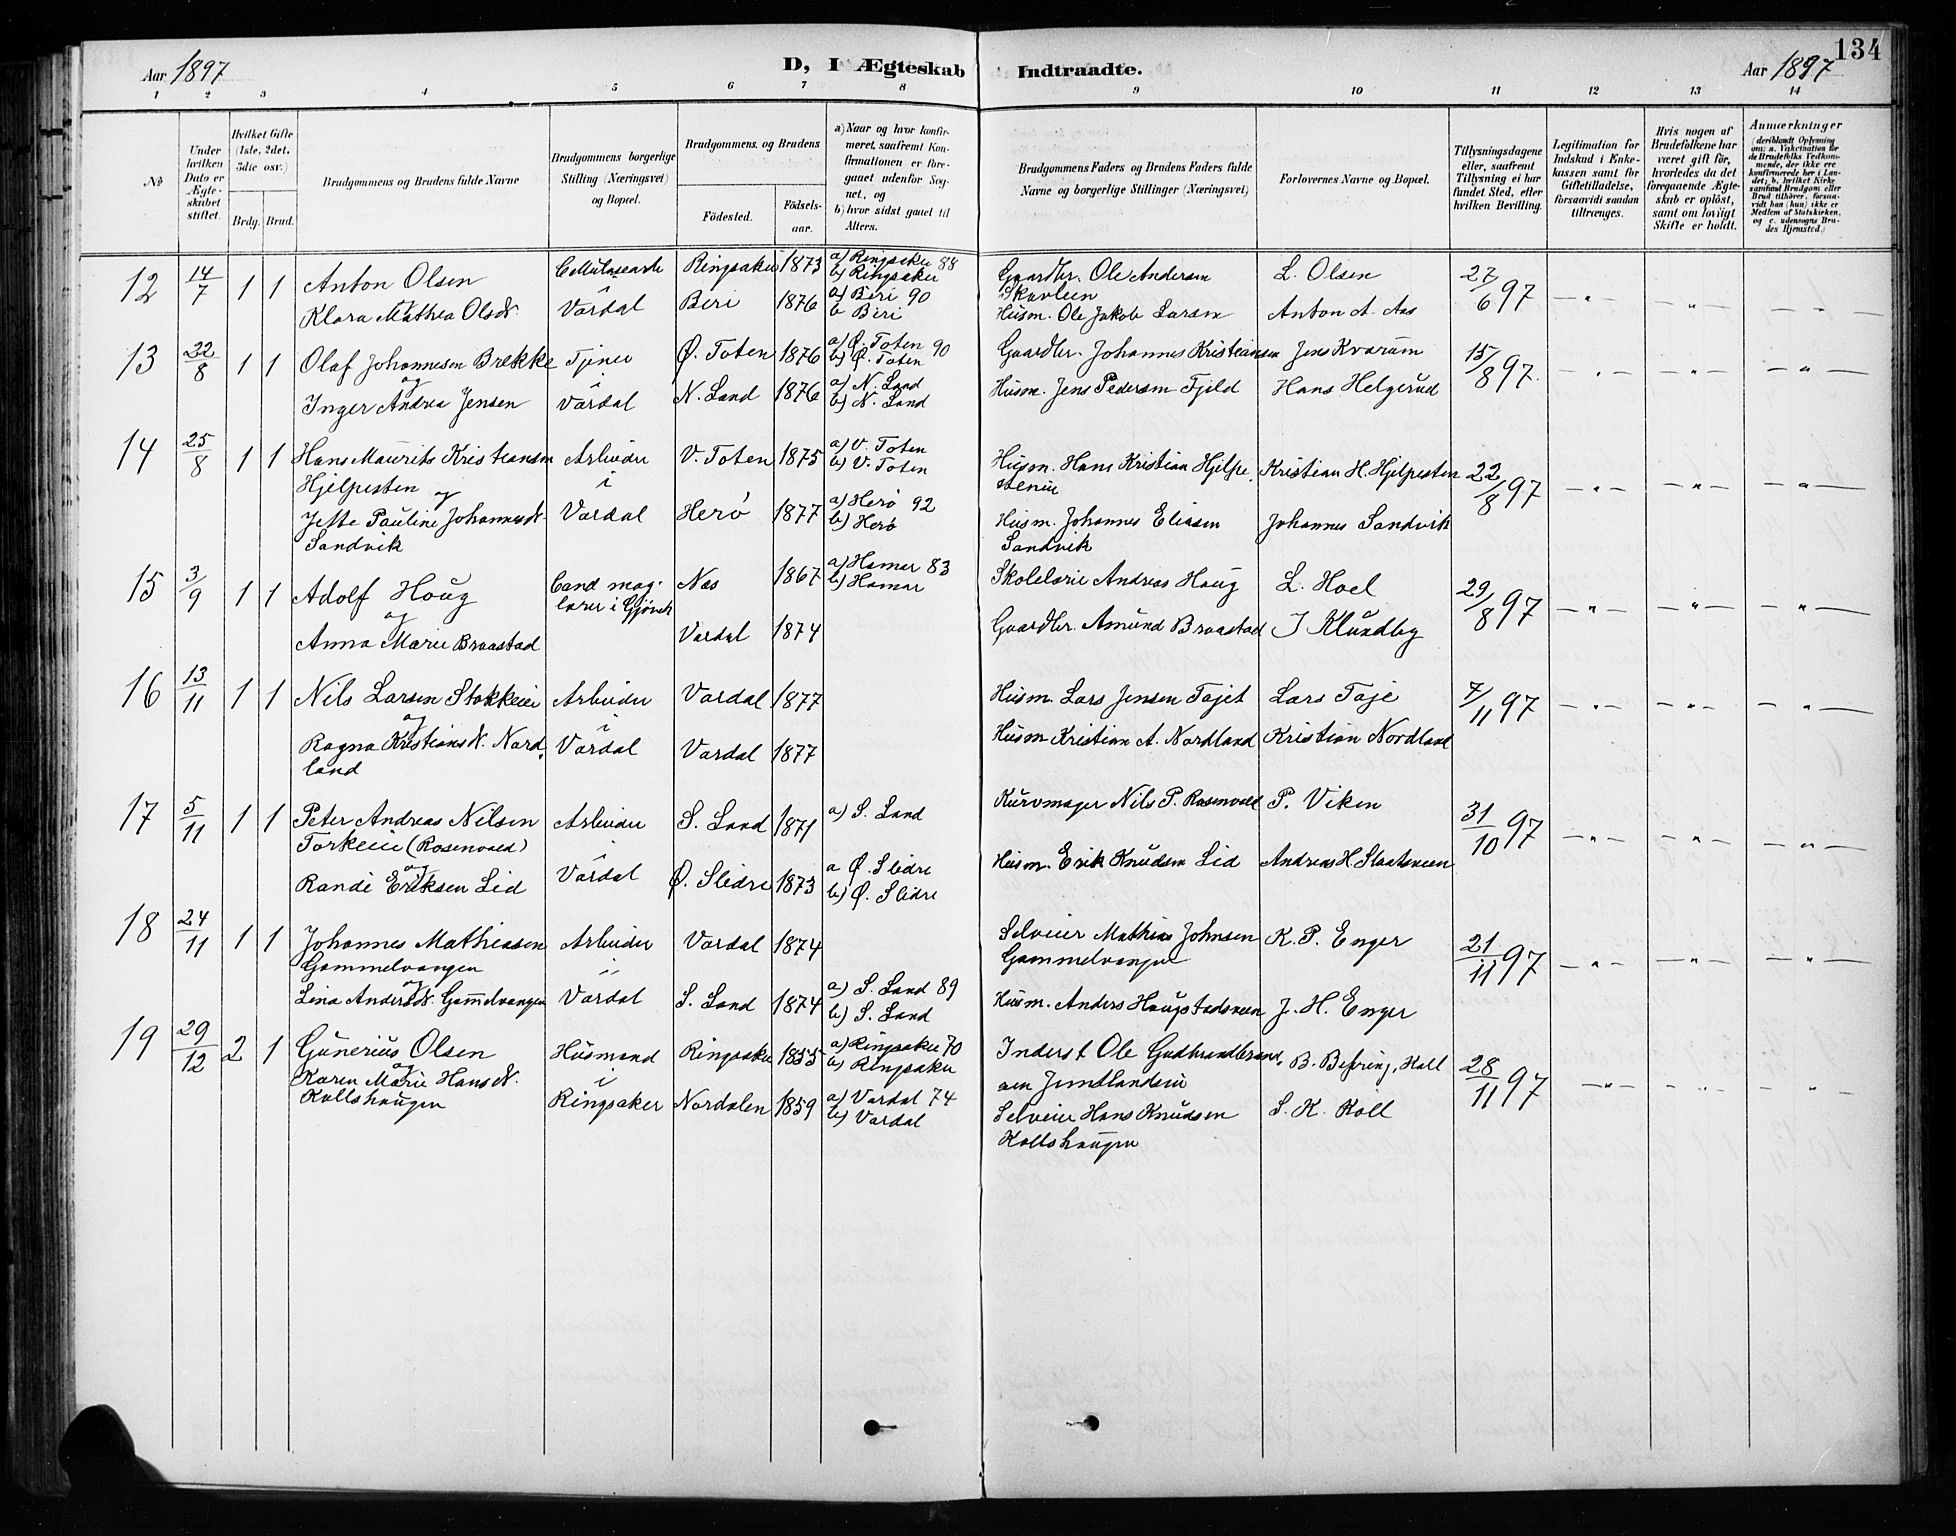 134
Aar 1897
D, I Ægteskab Indtraadte.
Aar 1897
1 2 3 4 5 6 7 8 9 10 11 12 13 14
No
Under hvilken Dato er Ægteskabet stiftet.
Hvilket Gifte (1ste, 2det, 3die osv.)
Brdg. Brud.
Brudgommens og Brudens fulde Navne
Brudgommens borgerlige Stilling (Næringsvei) og Bopæl.
Brudgommens og Brudens
Födested.
Födsels-aar.
a) Naar og hvor konfir-
meret, saafremt Kon-
firmationen er fore-
gaaet udenfor Sog-
net, og
b) hvor sidst gaaet til
Alters.
Brudgommens Faders og Brudens Faders fulde
Navne og borgerlige Stillinger (Næringsvei)
Forlovernes Navne og Bopæl.
Tillysningsdagene
eller, saafremt
Tillysning ei har
fundet Sted, efter
hvilken Bevilling.
Legitimation for
Indskud i Enke-
kassen samt for
Giftetilladelse,
forsaavidt saadan
tiltrænges.
Hvis nogen af
Brudefolkene har
været gift før,
hvorledes da det
foregaaende Ægte-
skab er oplöst,
samt om lovligt
Skifte er holdt.
Anmærkninger
(deriblandt Oplysning
om: a. Vakcination for
de Brudefolks Vedkom-
mende, der ikke ere
konfirmerede her i Lan-
det; b. hvilket Kirke-
samfund Brudgom eller
Brud tilhører, forsaa-
vidt han (hun) ikke er
Medlem af Statskirken,
og c. udensogns Bru-
des Hjemsted.)
12 14/7 1 1 Anton Olsen Ringsaker 1873 a) Ringsaker 88 b) Ringsaker Gaardbr. Ole Andersen L. Olsen 27/6 97
og Klara Mathea Olsdt. i Vardal Biri 1876 a) Biri 90 b Biri Husm. Ole Jakob Larsen Anton A. Aas
13 22/8 1 1 Olaf Johannesen Brekke Tjener Ø. Toten 1876 a) Ø. Toten 90 b) Ø. Toten Gaardbr. Johannes Kristiansen Jens Kvarum 15/8 97
og Inger Andrea Jensen i Vardal N. Land 1876 a) N. Land b) N. Land Husm. Jens Pedersen Fjeld Hans Helgerud
14 25/8 1 1 Hans Maurits Kristiansen Arbeider V. Toten 1875 a) V. Toten b) V. Toten Husm. Hans Kristian Hjelpe Kristian H. Hjelpesten 22/8 97
Hjelpesten og i stenen
Jette Pauline Johannesdt. Vardal Herø 1877 a) Herø 92 b) Herø Husm. Johannes Eliasen Johannes Sandvik
Sandvik Sandvik
15 3/9 1 1 Adolf Houg Cand mag. Næs 1867 a) Hamar 83 b) Hamar Skolelærer Andreas Houg L. Hoel 29/8 97
og lærer i Gjøvik
Anna Marie Braastad Vardal 1874 Gaardbr. Amund Braastad J Klundby
16 13/11 1 1 Nils Larsen Stokkeeie Arbeider Vardal 1877 Husm. Lars Jensen Tajet Lars Taje 7/11 97
og Ragna Kristiansdt. Nord- i Vardal Vardal 1877 Husm Kristian A. Nordland Kristian Nordland
land
17 5/11 1 1 Peter Andreas Nilsen Arbeider S. Land 1871 a) S. Land Kurvmager Nils P. Rosenvold P. Viken 31/10 97
(Rosenvold)
og Randi Eriksen Lid i Vardal Ø. Slidre 1873 a Ø. Slidre b) Ø. Slidre Husm. Erik Knudsen Lid Andreas H. Staatsveen
18 24/11 1 1 Johannes Mathiasen Arbeider Vardal 1874 Selveier Mathias Johnsen K. P. Enger 21/11 97
Gammelvangen i Gammelvangen
og Lina Andersdt. Gammelvangen Vardal S. Land 1874 a) S. Land 89 b) S. Land Husm. Anders Haugstadsveen J. H. Enger
19 29/12 2 1 Gunerius Olsen Husmand Ringsaker 1855 a) Ringsaker 70 b) Ringsaker Inderst Ole Gudbrandsen B. Behring, Koll 28/11 97
og Karen Marie Hansdt. i Ringsaker Nordalen 1859 a) Vardal 74 b) Vardal Selveier Hans Knudsen S. K. Koll
Kollshaugen Kollshaugen